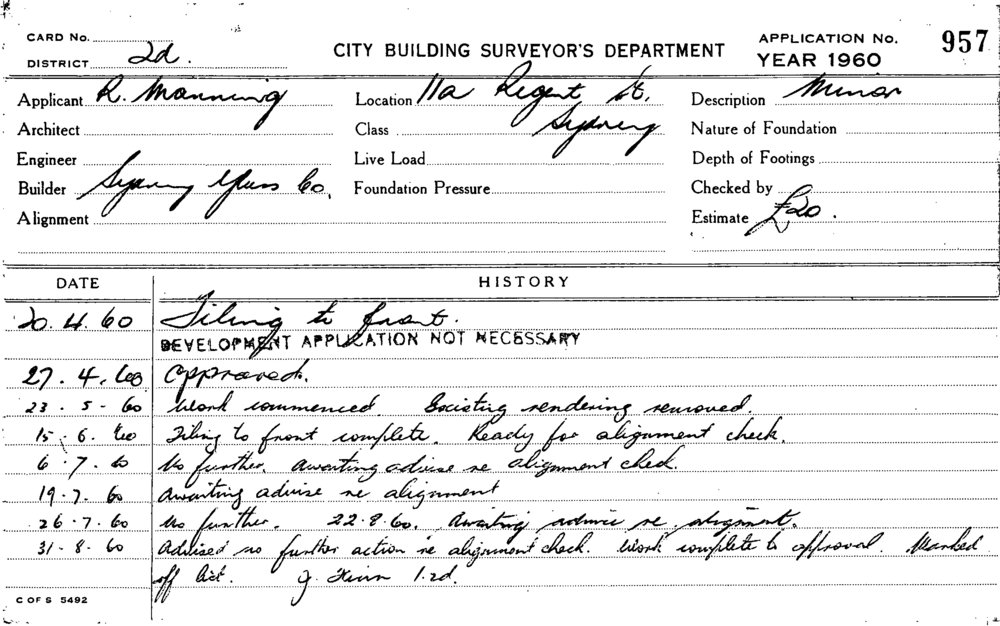 CARD No.
DISTRICT 2d.
CITY BUILDING SURVEYOR'S DEPARTMENT
APPLICATION No. 957
YEAR 1960
Applicant R. Manning
Location 11a Regent St.
Description Minor
Architect
Class Sydney
Nature of Foundation
Engineer
Live Load
Depth of Footings
Builder Sydney Glass Co.
Foundation Pressure
Checked by
Alignment
Estimate £20.
DATE HISTORY
20.4.60 Tiling to front.
DEVELOPMENT APPLICATION NOT NECESSARY
27.4.60 Approved.
23.5.60 Work commenced. Existing rendering removed.
15.6.60 Tiling to front complete. Ready for alignment check.
6.7.60 No further. Awaiting advise re alignment check.
19.7.60 Awaiting advise re alignment
26.7.60 No further. 22.8.60. Awaiting advice re alignment.
31.8.60 Advised no further action re alignment check. Work complete to approval. Marked
off list. J.
C OF S 5492